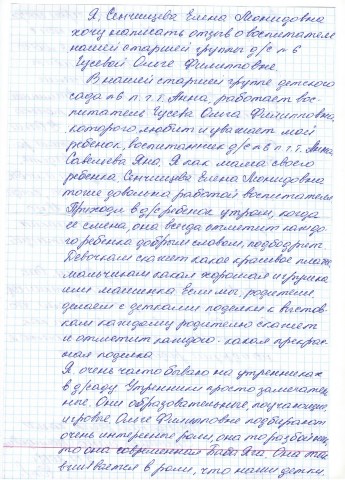 Я, Сенчищева Елена Леонидовна
хочу написать отзыв о воспитателе
нашей старшей группы д/с № 6
Гусевой Ольге Филипповне.
В нашей старшей группе детского
сада № 6 п.г.т. Анна, работает вос-
питатель Гусева Ольга Филипповна,
которого любит и уважает мой
ребенок, воспитанник д/с № 6 п.г.т. Анна,
Савищева Яна. Я как мама своего
ребенка Сенчищева Елена Леонидовна
тоже довольна работой воспитателя
Приходя в д/с ребенок утром, когда
ее смена, она всегда отметит каждо-
го ребенка добрым словом, подбодрит.
Девочкам скажет какое красивое платье,
мальчикам какая хорошая игрушка
или машинка. Если мы, родители
делаем с детками поделки к выстав-
кам каждому родителю скажет
и отметит каждого - какая прекрас-
ная поделка
Я очень часто бываю на утренниках
в д/саду. Утренники просто замечатель-
ные. Они образовательные, поучающие,
игровые. Ольге Филипповне подбирают
очень интересные роли, она то разбойник,
то она современная Баба Яга. Она так
вживается в роли, что наши детки